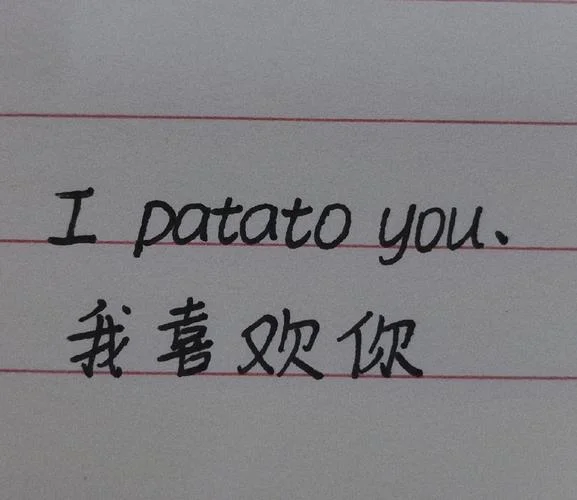 I patato you.
我喜欢你